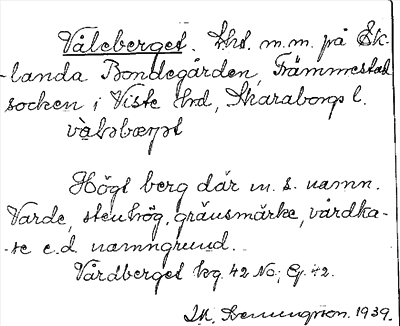 Våleberget. Lhd. m.m. på Ek-
-landa Bondegården, Främmestad
socken i Viste hrd, Skaraborgs l.
Högt berg där m. s. namn.
Varde, stenhög, gränsmärke, vårdka-
-se e.d. namngrund.
Vårdberget kg. 42 No; Eg. 42.
1939.